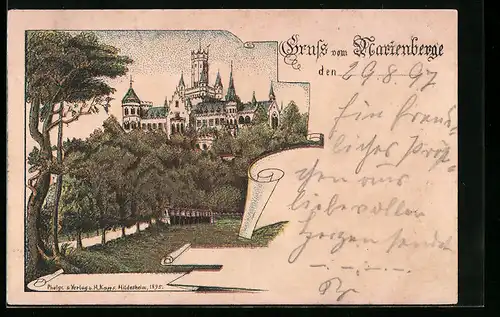 Gruss vom Marienberge
den 29.8.97
Ein freund-
liches Grüß-
chen aus
liebevollem
Herzen sendet
Photgr. u. Verlag v. H. Kapps. Hildesheim, 1895.